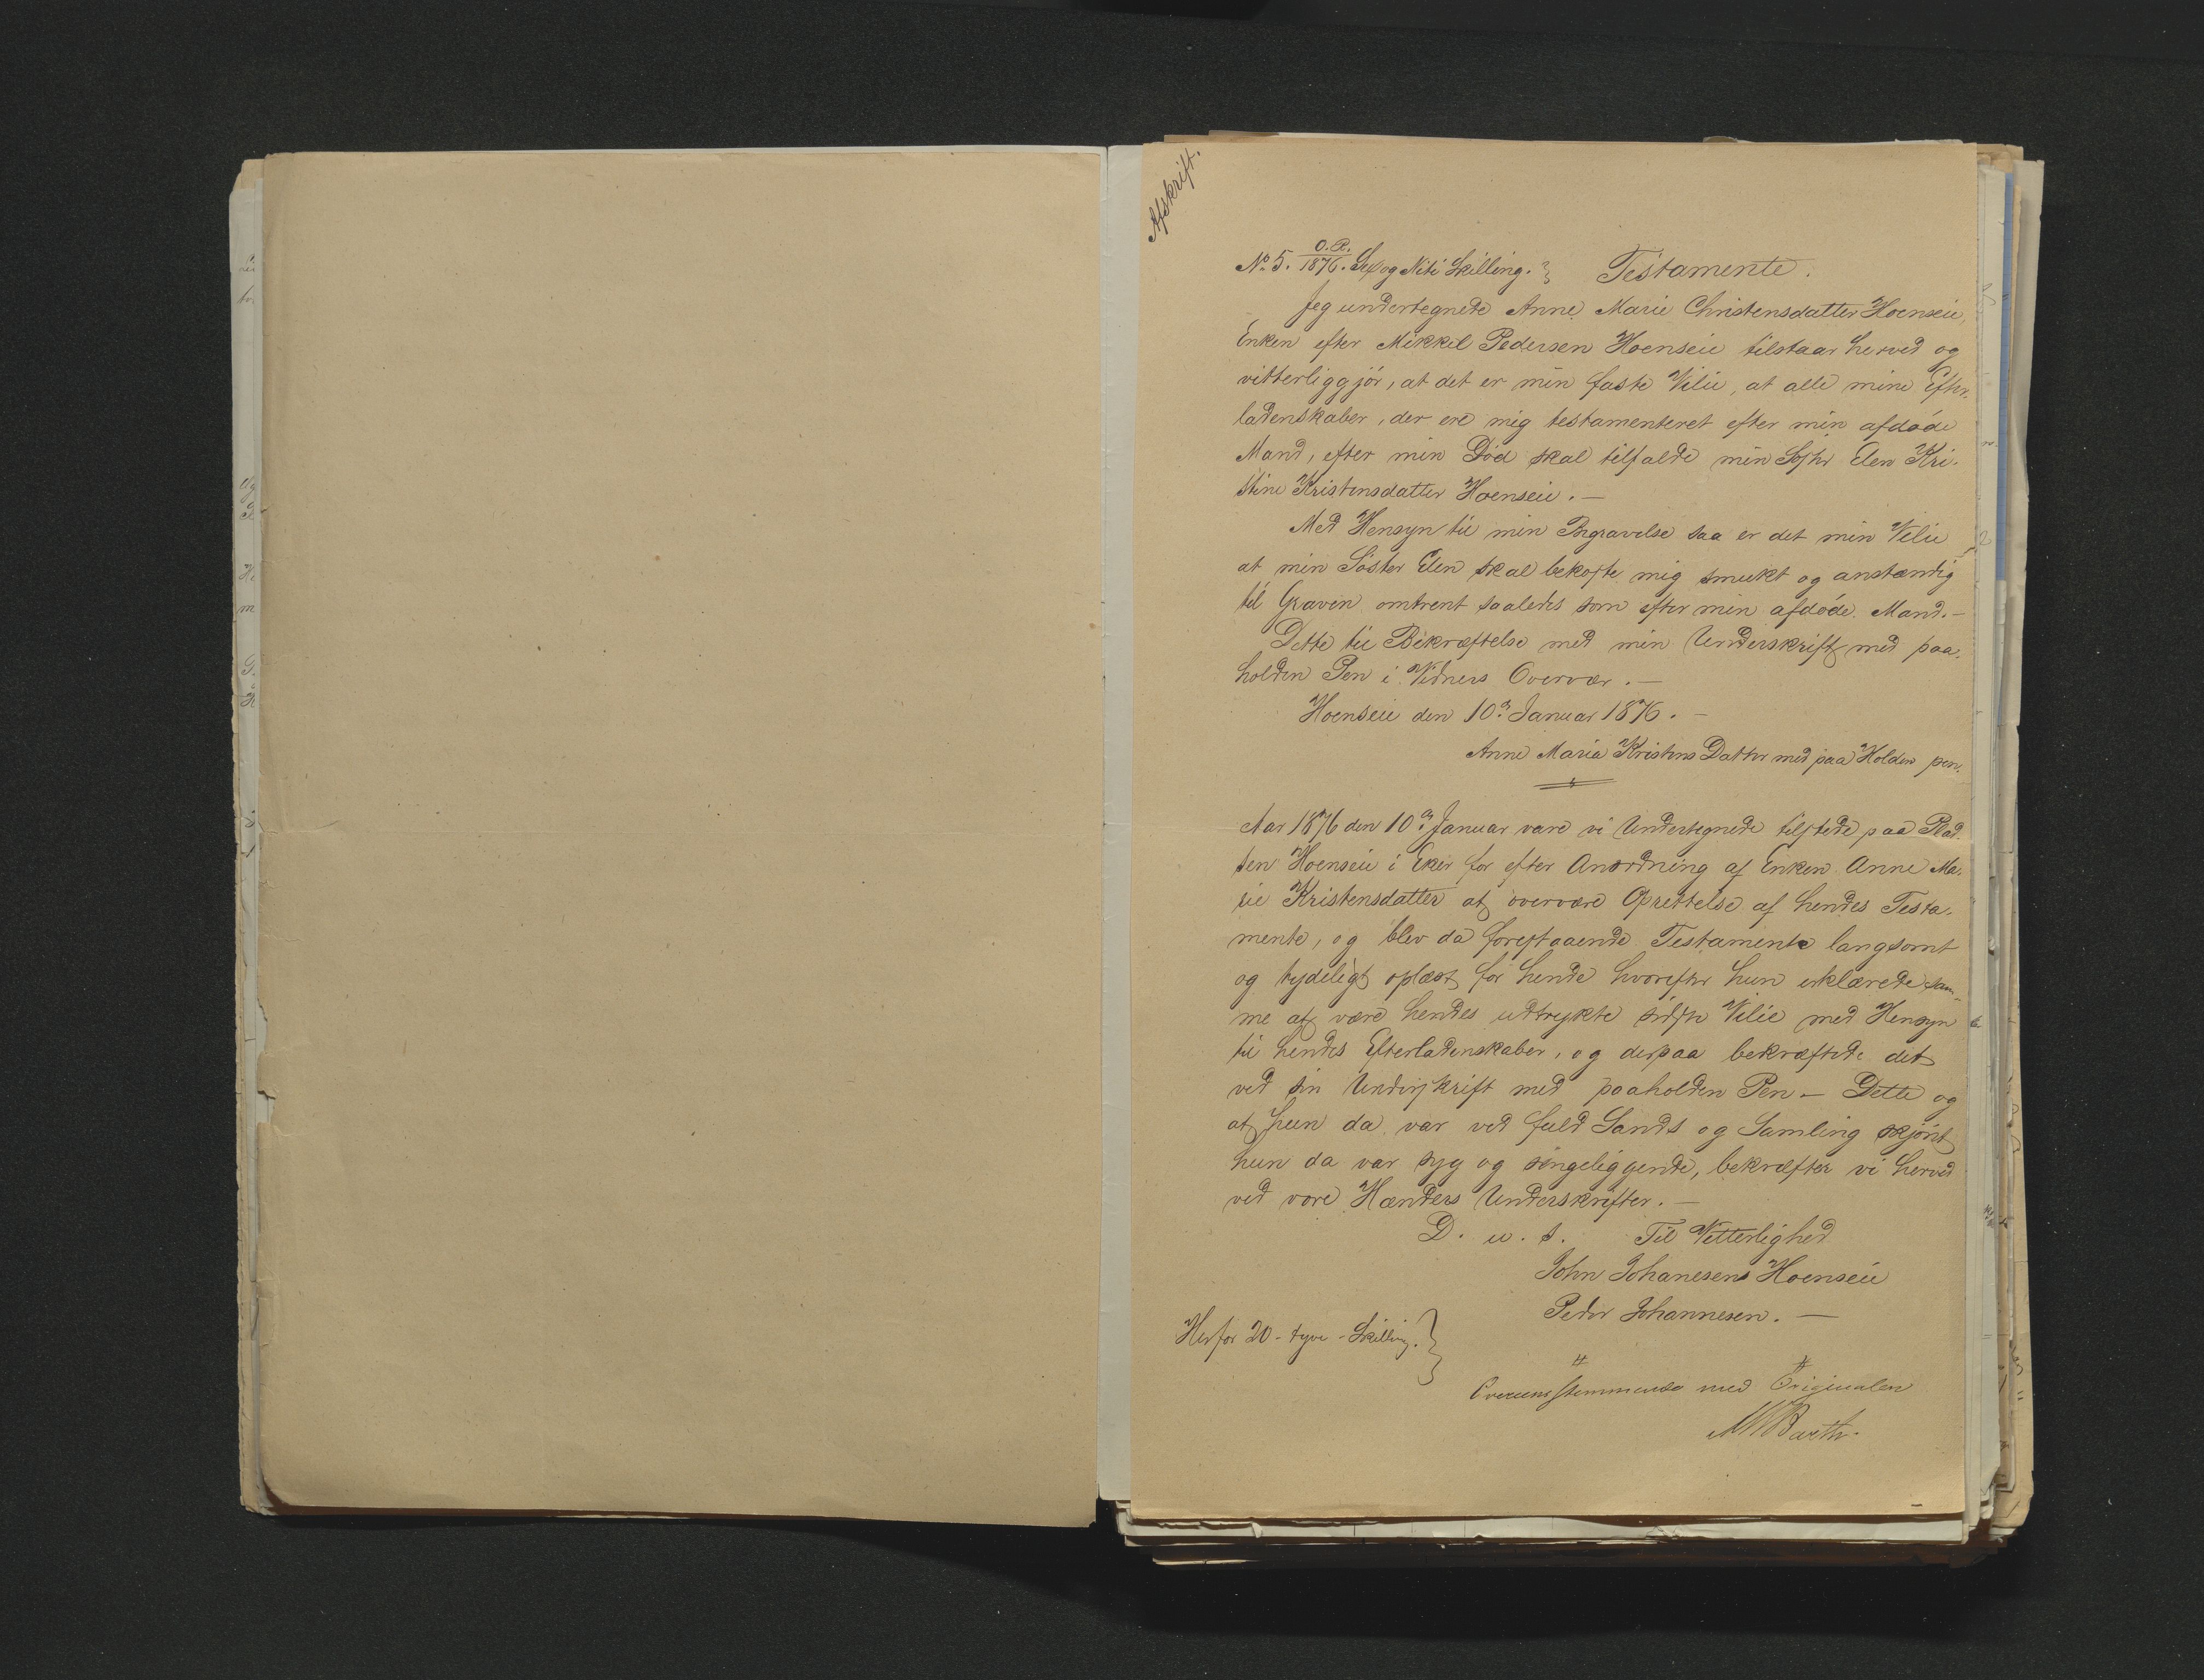 Afskrift.
No 5. O.R./1876. Sex og Niti Skilling. } Testamente.
Jeg undertegnede Anne Marie Christensdatter Hoenseie,
Enken efter Mikkel Pedersen Hoenseie tilstaar herved og
vitterliggjör, at det er min faste Vilie, at alle mine Efter-
ladenskaber, der ere mig testamenteret efter min afdöde
Mand, efter min Död skal tilfalde min Søster Elen Kri-
stine Kristensdatter Hoenseie. —
Med Hensyn til min Begravelse saa er det min Vilie
at min Söster Elen skal bekoste mig smukt og anstændig
til Graven omtrent saaledes som efter min afdöde Mand. —
Dette til Bekræftelse med min Underskrift med paa-
holden Pen i Vidners Overvær. —
Hoenseie den 10de Januar 1876. —
Anne Maria Kristens Datter med paa Holden pen.
Aar 1876 den 10de Januar vare vi Undertegnede tilstede paa Plad-
sen Hoenseie i Eker for efter Anordning af Enken Anne Ma-
rie Kristensdatter at overvære Oprettelse af hendes Testa-
mente, og blev da forestaaende Testamente langsomt
og tydeligt oplæst for hende hvorefter hun erklærede sam-
me at være hendes udtrykte sidste Vilie med Hensyn
til hendes Efterladenskaber, og derpaa bekræftede det
ved sin Underskrift med paaholden Pen — Dette og
at hun da var ved fuld Sands og Samling skjönt
hun da var syg og sengeliggende, bekræfter vi herved
ved vore Hænders Underskrifter. —
D. u. s. Til Vitterlighed
John Johanesens Hoenseie
Peder Johannesen. —
Herfor 20 - tyve - Skilling. }
Overensstemmende med Originalen
MWBarth.